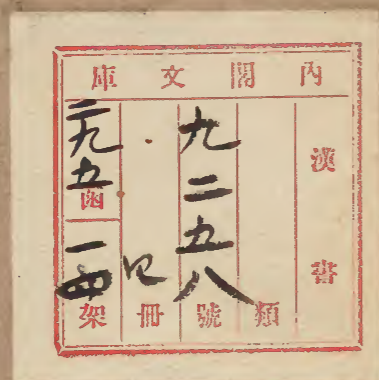 內閣文庫
漢書
類
九二五八號
冊
二九五函
一四架